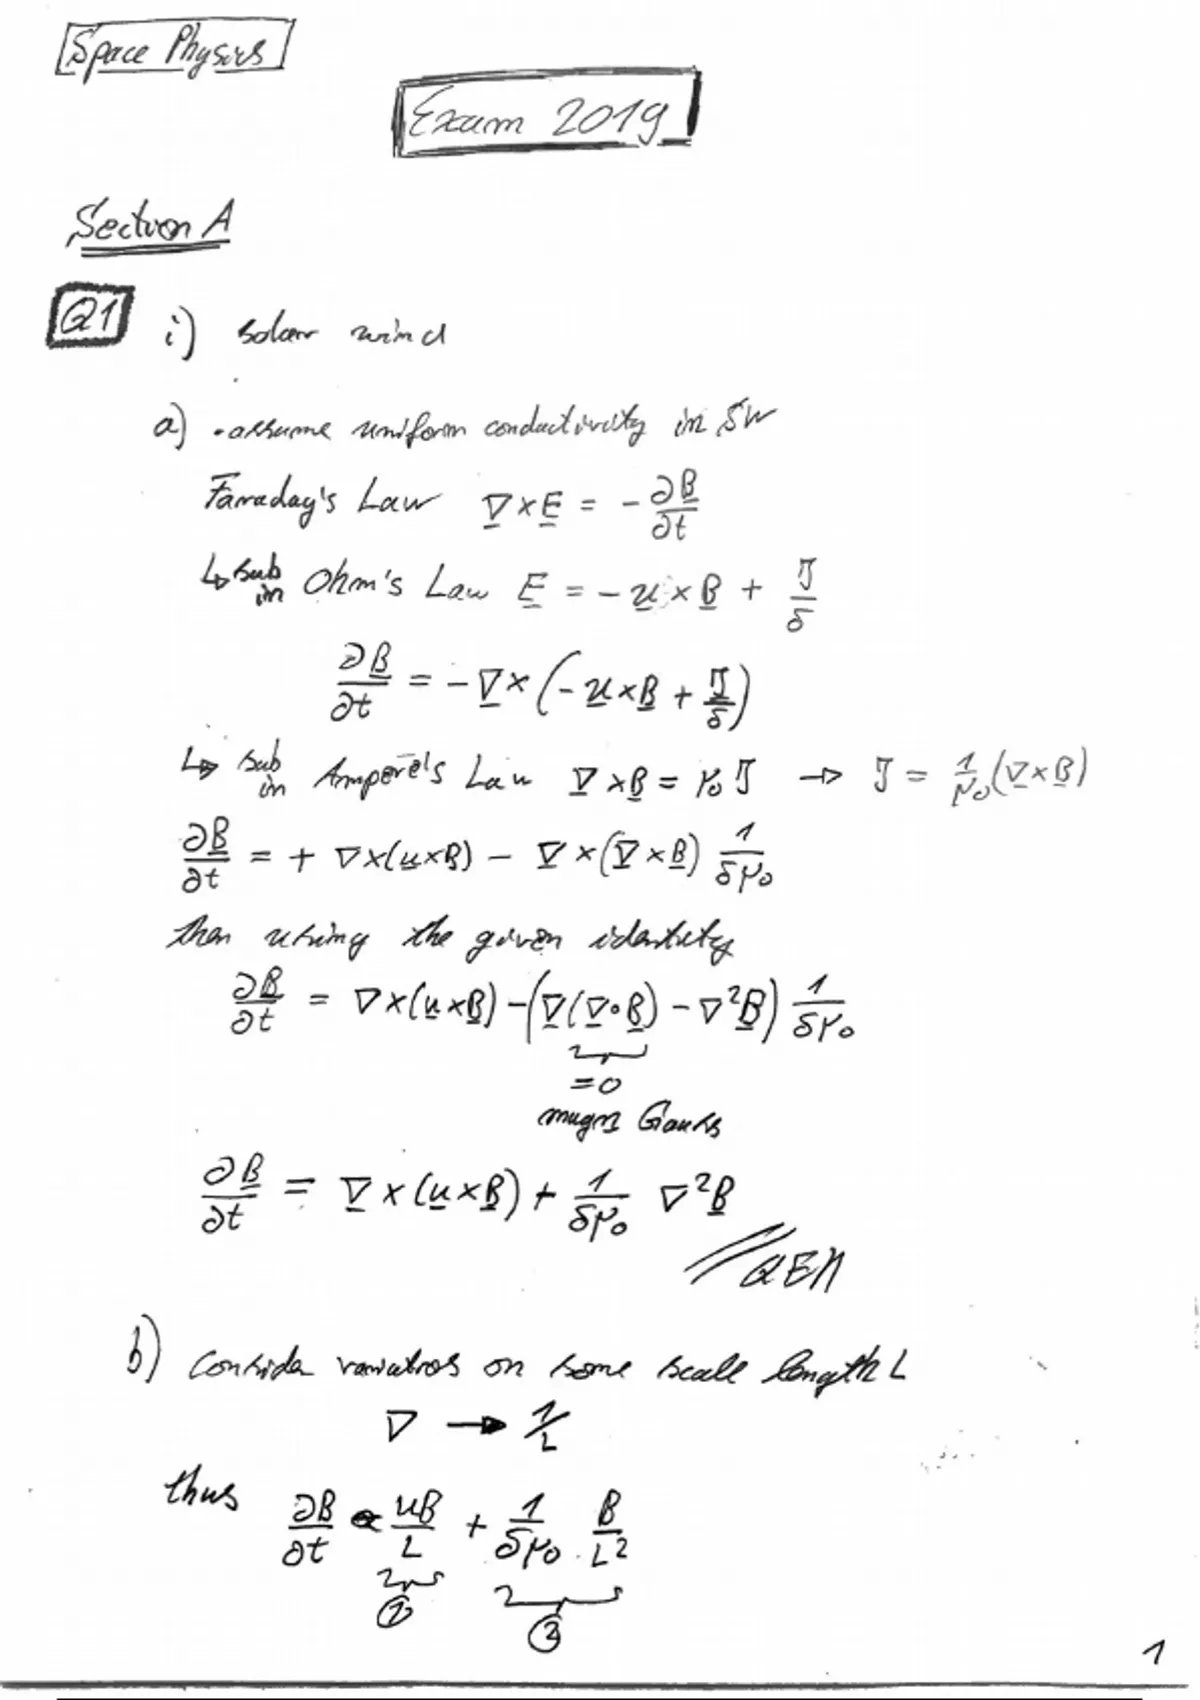 Space Physics
Exam 2019
Section A
Q1 i) solar wind
a) • assume uniform conductivity in SW
Faraday's Law ∇ × E = - ∂B/∂t
↳ sub in Ohm's Law E = - u × B + J/σ
∂B/∂t = - ∇ × (- u × B + J/σ)
↳ sub in Ampere's Law ∇ × B = μ₀ J → J = 1/μ₀ (∇ × B)
∂B/∂t = + ∇ × (u × B) - ∇ × (∇ × B) 1/σμ₀
then using the given identity
∂B/∂t = ∇ × (u × B) - (∇(∇ • B) - ∇²B) 1/σμ₀
= 0
magn Gauss
∂B/∂t = ∇ × (u × B) + 1/σμ₀ ∇²B
QED
b) Consider variations on some scale length L
∇ → 1/L
thus ∂B/∂t ∝ uB/L + 1/σμ₀ · B/L²
① ②
1